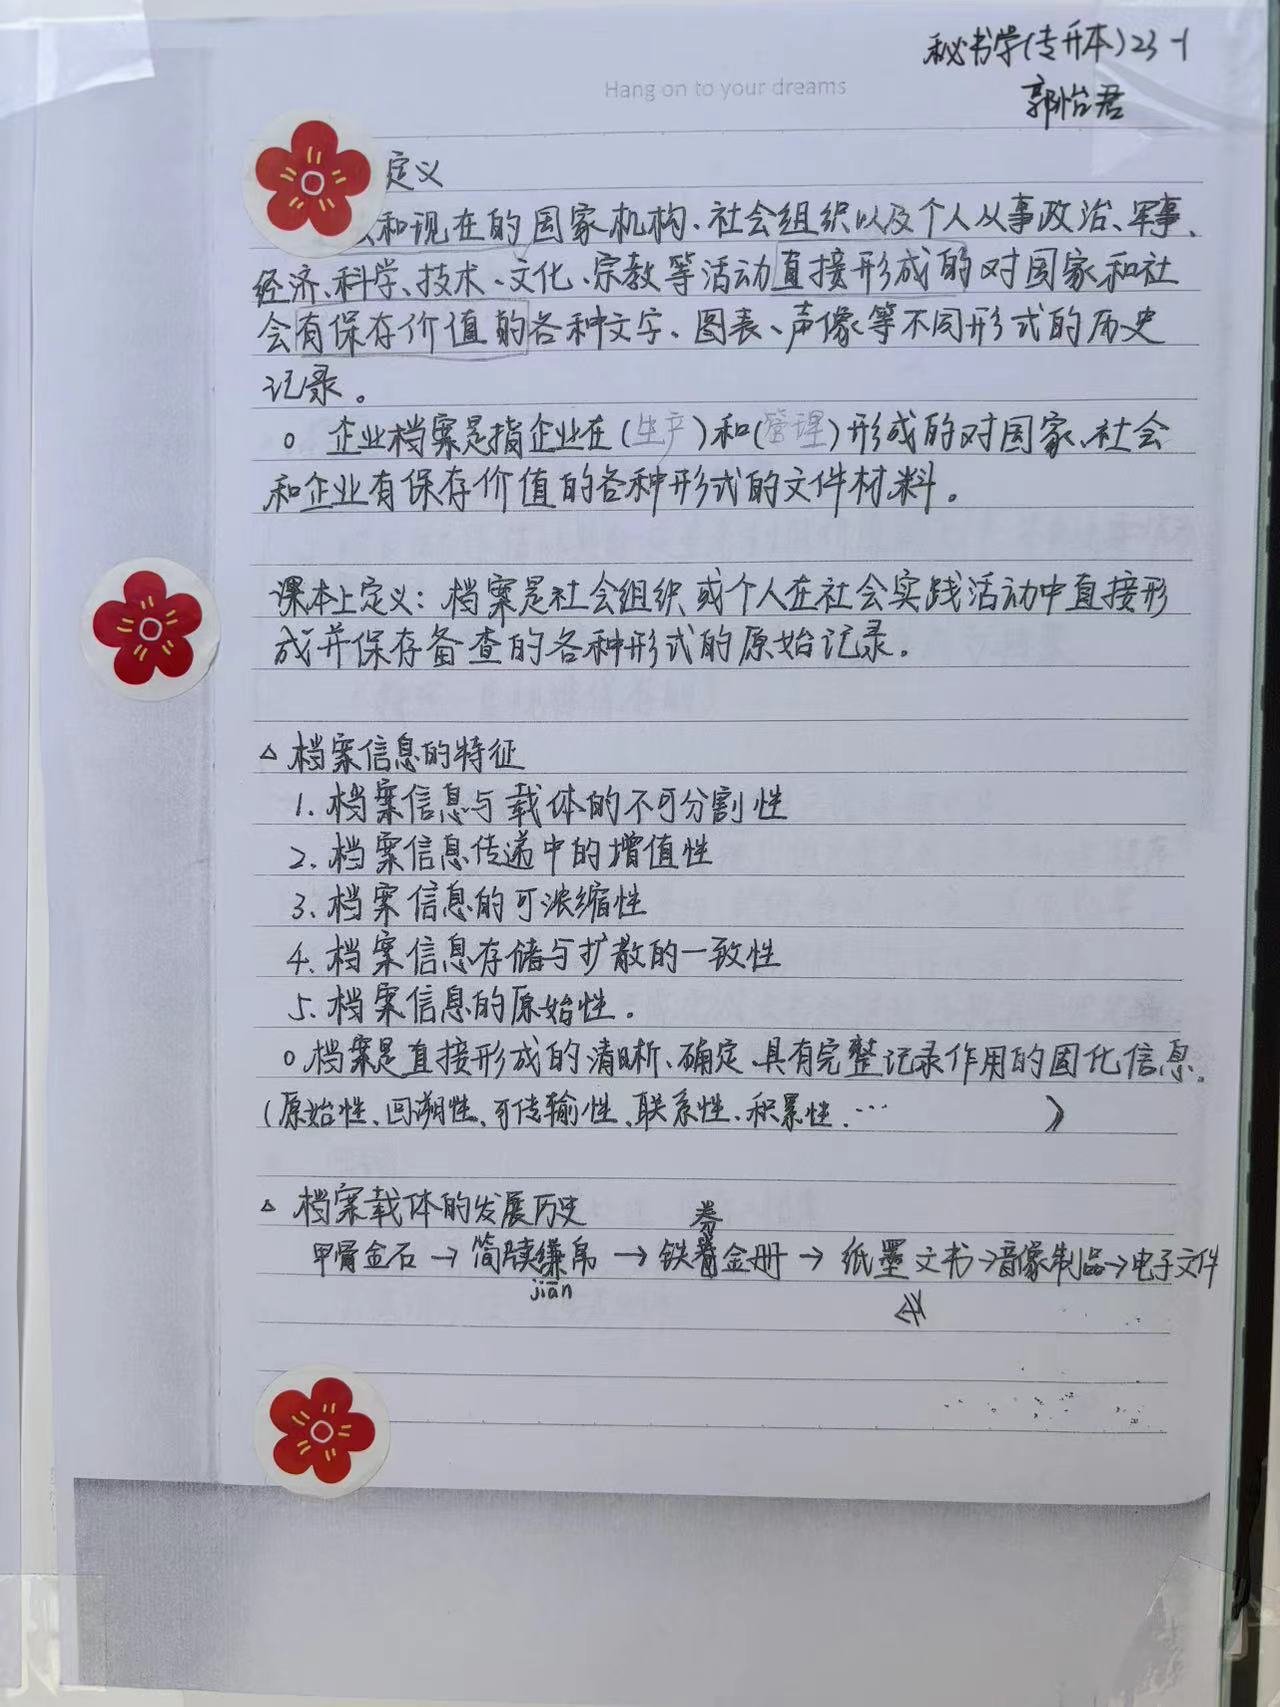 秘书学(专升本)23-1
Hang on to your dreams
郭怡君
定义
和现在的国家机构、社会组织以及个人从事政治、军事、
经济、科学、技术、文化、宗教等活动直接形成的对国家和社
会有保存价值的各种文字、图表、声像等不同形式的历史
记录。
○ 企业档案是指企业在(生产)和(管理)形成的对国家、社会
和企业有保存价值的各种形式的文件材料。
课本上定义：档案是社会组织或个人在社会实践活动中直接形
成并保存备查的各种形式的原始记录。
△ 档案信息的特征
1. 档案信息与载体的不可分割性
2. 档案信息传递中的增值性
3. 档案信息的可浓缩性
4. 档案信息存储与扩散的一致性
5. 档案信息的原始性.
○ 档案是直接形成的清晰、确定、具有完整记录作用的固化信息.
(原始性、回溯性、可传输性、联系性、积累性、… )
△ 档案载体的发展历史
券
甲骨金石→简牍缣帛→铁金册→纸墨文书→音像制品→电子文件
jiān